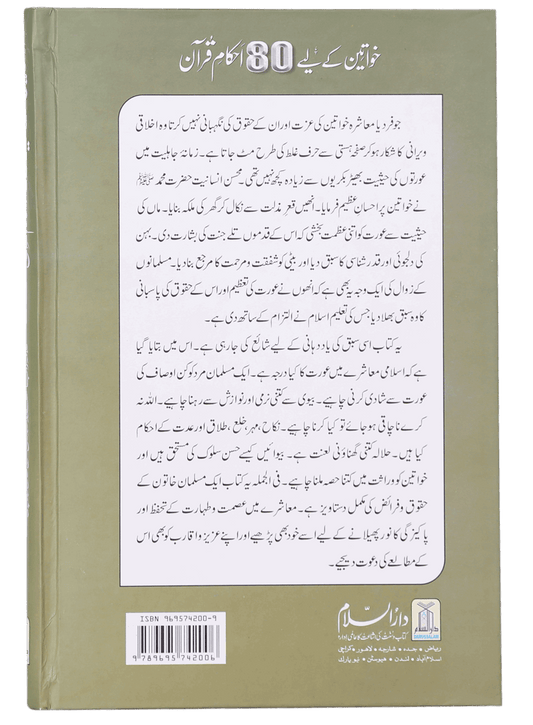 خواتین کے لیے 80 احکامِ قرآن
جو فرد یا معاشرہ خواتین کی عزت اور ان کے حقوق کی نگہبانی نہیں کرتا وہ اخلاقی
ویرانی کا شکار ہو کر صفحۂ ہستی سے حرفِ غلط کی طرح مٹ جاتا ہے۔ زمانۂ جاہلیت میں
عورتوں کی حیثیت بھیڑ بکریوں سے زیادہ کچھ نہیں تھی۔ محسنِ انسانیت حضرت محمد ﷺ
نے خواتین پر احسانِ عظیم فرمایا۔ انھیں قعرِ مذلت سے نکال کر گھر کی ملکہ بنایا۔ ماں کی
حیثیت سے عورت کو اتنی عظمت بخشی کہ اس کے قدموں تلے جنت کی بشارت دی۔ بہن
کی دلجوئی اور قدر شناسی کا سبق دیا اور بیٹی کو شفقت و مرحمت کا مرجع بنا دیا۔ مسلمانوں
کے زوال کی ایک وجہ یہ بھی ہے کہ انھوں نے عورت کی تعظیم اور اس کے حقوق کی پاسبانی
کا وہ سبق بھلا دیا جس کی تعلیم اسلام نے التزام کے ساتھ دی ہے۔
یہ کتاب اسی سبق کی یاد دہانی کے لیے شائع کی جا رہی ہے۔ اس میں بتایا گیا
ہے کہ اسلامی معاشرے میں عورت کا کیا درجہ ہے۔ ایک مسلمان مرد کو کن اوصاف کی
عورت سے شادی کرنی چاہیے۔ بیوی سے کتنی نرمی اور نوازش سے رہنا چاہیے۔ اللہ نہ
کرے ناچاقی ہو جائے تو کیا کرنا چاہیے۔ نکاح، مہر، خلع، طلاق اور عدت کے احکام
کیا ہیں۔ حلالہ کتنی گھناؤنی لعنت ہے۔ بیوائیں کیسے حسنِ سلوک کی مستحق ہیں اور
خواتین کو وراثت میں کتنا حصہ ملنا چاہیے۔ فی الجملہ یہ کتاب ایک مسلمان خاتون کے
حقوق و فرائض کی مکمل دستاویز ہے۔ معاشرے میں عصمت و طہارت کے تحفظ اور
پاکیزگی کا نور پھیلانے کے لیے اسے خود بھی پڑھیے اور اپنے عزیز و اقارب کو بھی اس
کے مطالعے کی دعوت دیجیے۔
ISBN 969574200-9
9 789695 742006
دارالسلام
کتاب و سنت کی اشاعت کا عالمی ادارہ
ریاض • جدہ • شارجہ • لاہور • کراچی
اسلام آباد • لندن • ہیوسٹن • نیو یارک
دارالسلام
DARUSSALAM